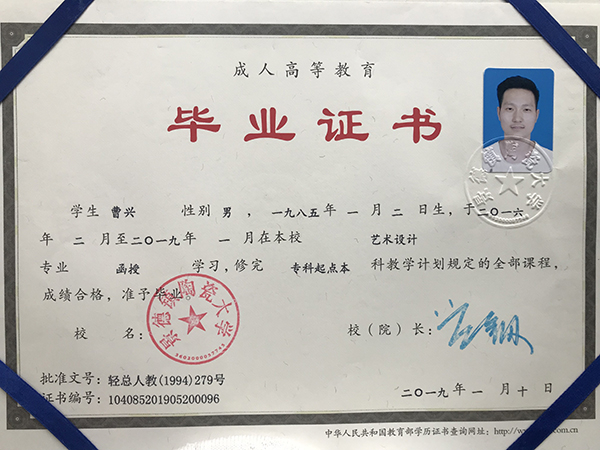 成人高等教育
毕业证书
学生 曹兴 性别 男，一九八五年 一 月 二 日生，于二〇一六
年 二 月至二〇一九年 一 月在本校 艺术设计
专业 函授 学习，修完 专科起点本 科教学计划规定的全部课程，
成绩合格，准予毕业。
校 名：
景德镇陶瓷大学
校（院）长：
批准文号：轻总人教(1994)279号
证书编号：104085201905200096
二〇一九年 一 月 十 日
中华人民共和国教育部学历证书查询网址：http://w
.com.cn
景德镇陶瓷大学